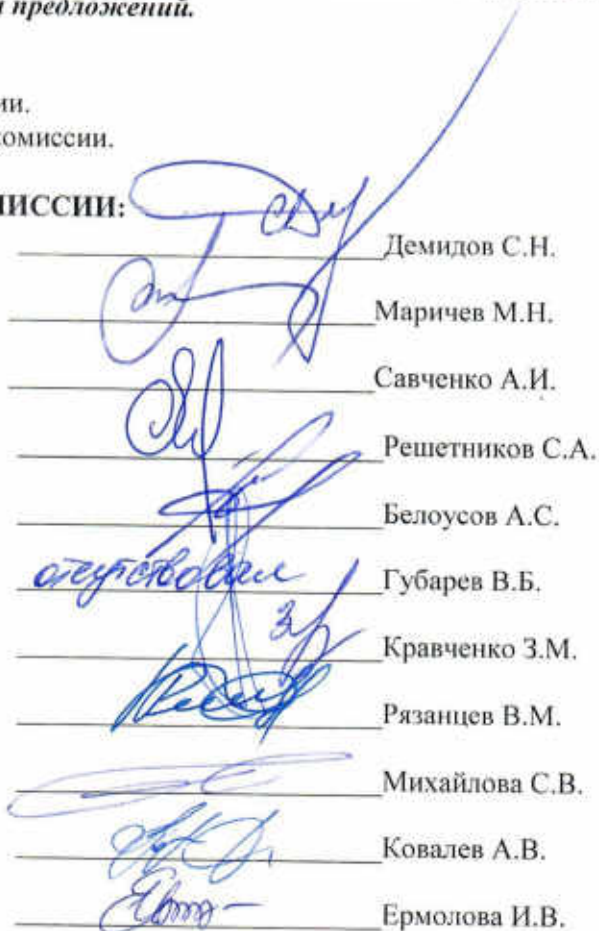 предложений.
ии.
омиссии.
ИССИИ:
Демидов С.Н.
Маричев М.Н.
Савченко А.И.
Решетников С.А.
Белоусов А.С.
отсутствовал Губарев В.Б.
Кравченко З.М.
Рязанцев В.М.
Михайлова С.В.
Ковалев А.В.
Ермолова И.В.